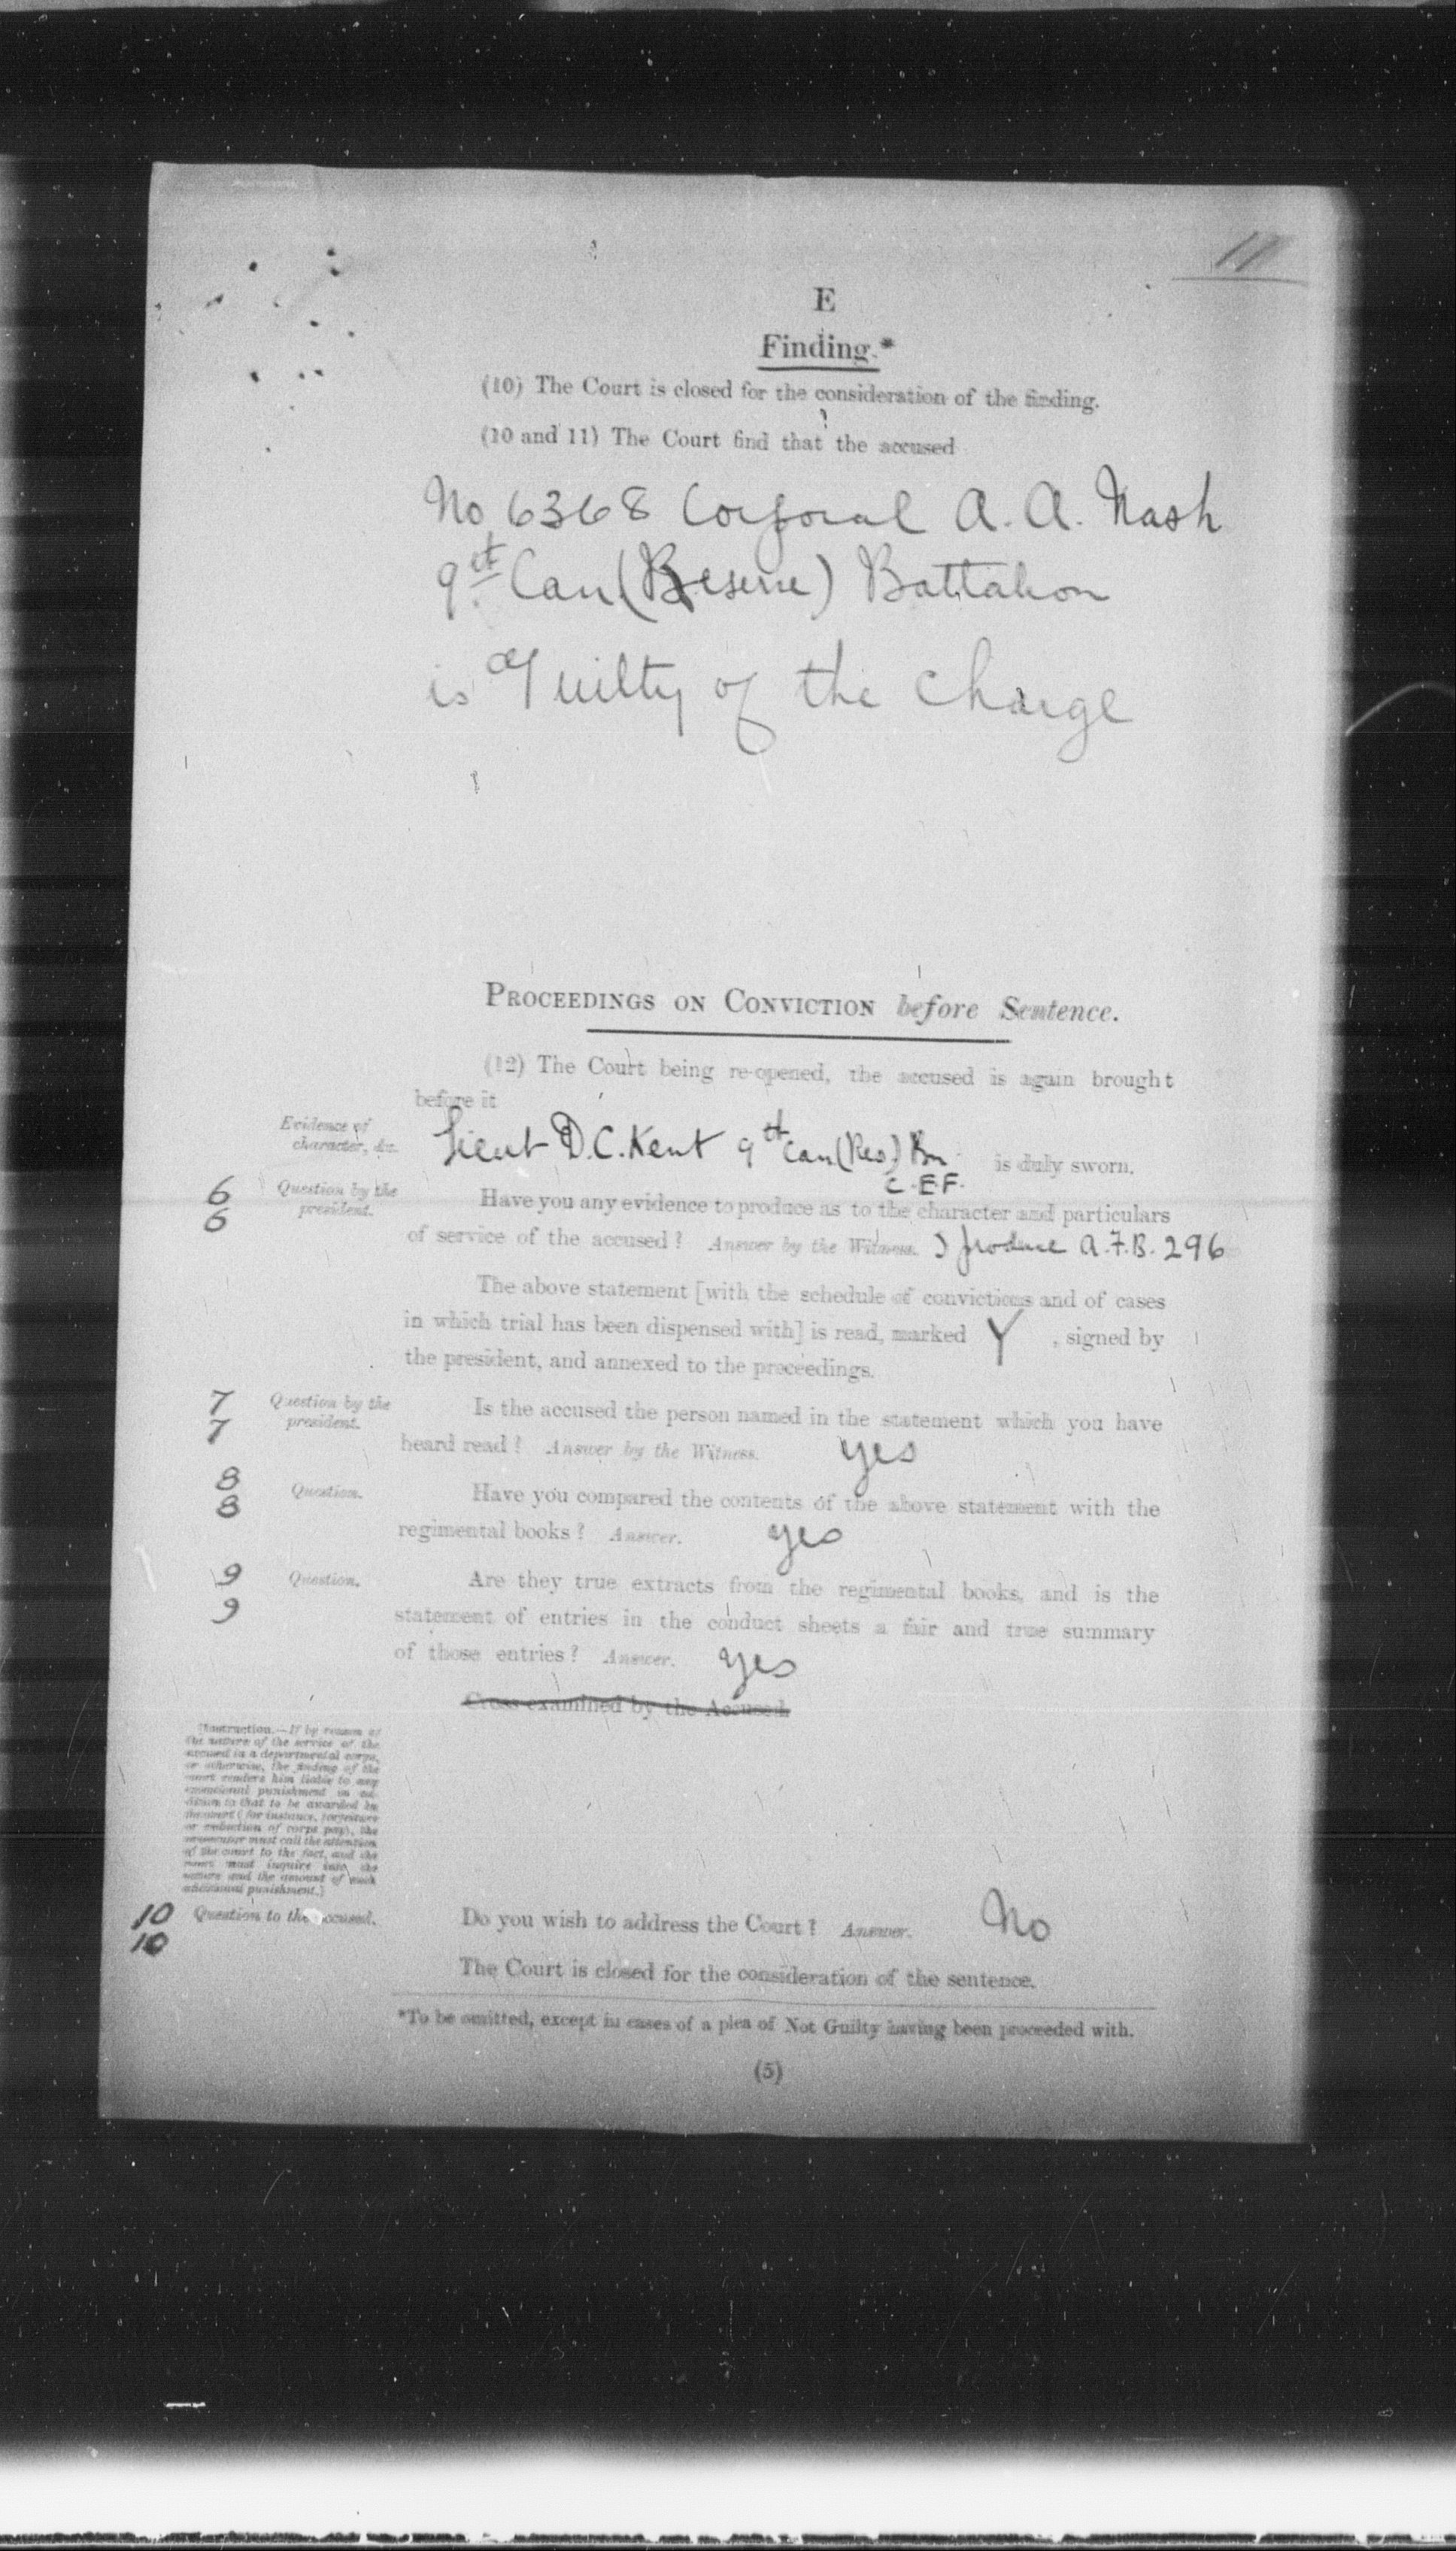 11
E
Finding.*
(10) The Court is closed for the consideration of the finding.
(10 and 11) The Court find that the accused
No 6368 Corporal A. A. Nash
9th Can (Reserve) Battalion
is Guilty of the charge
PROCEEDINGS ON CONVICTION before Sentence.
(12) The Court being re-opened, the accused is again brought
before it
Evidence of
character, &c.
Lieut D.C. Kent 9th Can (Res) Bn is duly sworn.
C.E.F.
6
6
Question by the
president.
Have you any evidence to produce as to the character and particulars
of service of the accused? Answer by the Witness. I produce A.F.B. 296
The above statement [with the schedule of convictions and of cases
in which trial has been dispensed with] is read, marked Y , signed by
the president, and annexed to the proceedings.
7
7
Question by the
president.
Is the accused the person named in the statement which you have
heard read? Answer by the Witness. yes
8
8
Question.
Have you compared the contents of the above statement with the
regimental books? Answer. yes
9
9
Question.
Are they true extracts from the regimental books, and is the
statement of entries in the conduct sheets a fair and true summary
of those entries? Answer. yes
Cross-examined by the Accused.
[Instruction.—If by reason of
the nature of the service of the
accused in a departmental corps,
or otherwise, the finding of the
court renders him liable to any
exceptional punishment in ad-
dition to that to be awarded by
the court (for instance, forfeiture
or reduction of corps pay), the
prosecutor must call the attention
of the court to the fact, and the
court must inquire into the
nature and the amount of such
additional punishment.]
10
10
Question to the accused.
Do you wish to address the Court? Answer. No
The Court is closed for the consideration of the sentence.
*To be omitted, except in cases of a plea of Not Guilty having been proceeded with.
(5)